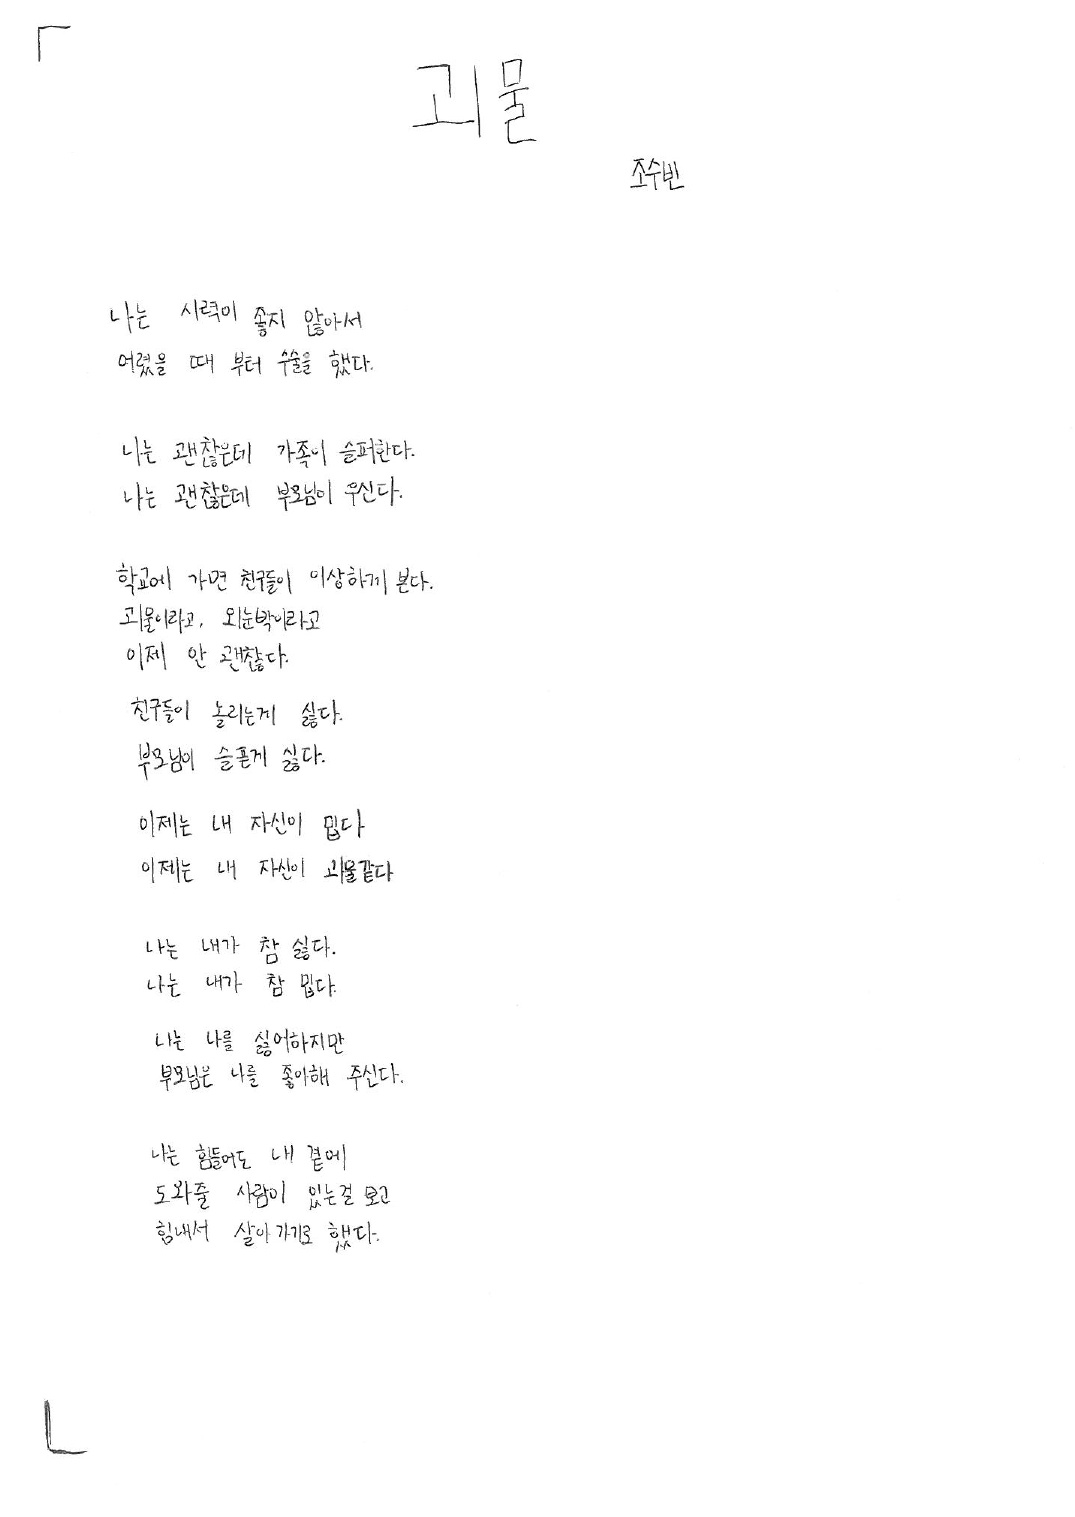 괴물
조수빈
나는 시력이 좋지 않아서
어렸을 때 부터 수술을 했다.
나는 괜찮은데 가족이 슬퍼한다.
나는 괜찮은데 부모님이 우신다.
학교에 가면 친구들이 이상하게 본다.
괴물이라고, 외눈박이라고
이제 안 괜찮다.
친구들이 놀리는게 싫다.
부모님이 슬픈게 싫다.
이제는 내 자신이 밉다
이제는 내 자신이 괴물같다
나는 내가 참 싫다.
나는 내가 참 밉다.
나는 나를 싫어하지만
부모님은 나를 좋아해 주신다.
나는 힘들어도 내 곁에
도와줄 사람이 있는걸 보고
힘내서 살아가기로 했다.